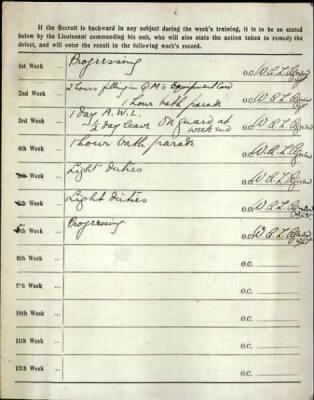 If the Recruit is backward in any subject during the week's training, it is to be so stated
below by the Lieutenant commanding his unit, who will also state the action taken to remedy the
defect, and will enter the result in the following week's record.
1st Week ... Progressing O.C. W A L
2nd Week ... 2 hours filling in Q M's Equipment Card
1 hour bath parade O.C. W A L
3rd Week ... 1 day A.W.L.
½ day leave On guard at
week end O.C. W A L
4th Week ... 1 hour bath parade O.C. W A L
Week ... Light duties O.C. W A L
Week ... Light duties O.C. W A L
Week ... Progressing O.C. W A L
8th Week ... O.C.
9th Week ... O.C.
10th Week ... O.C.
11th Week ... O.C.
12th Week ... O.C.